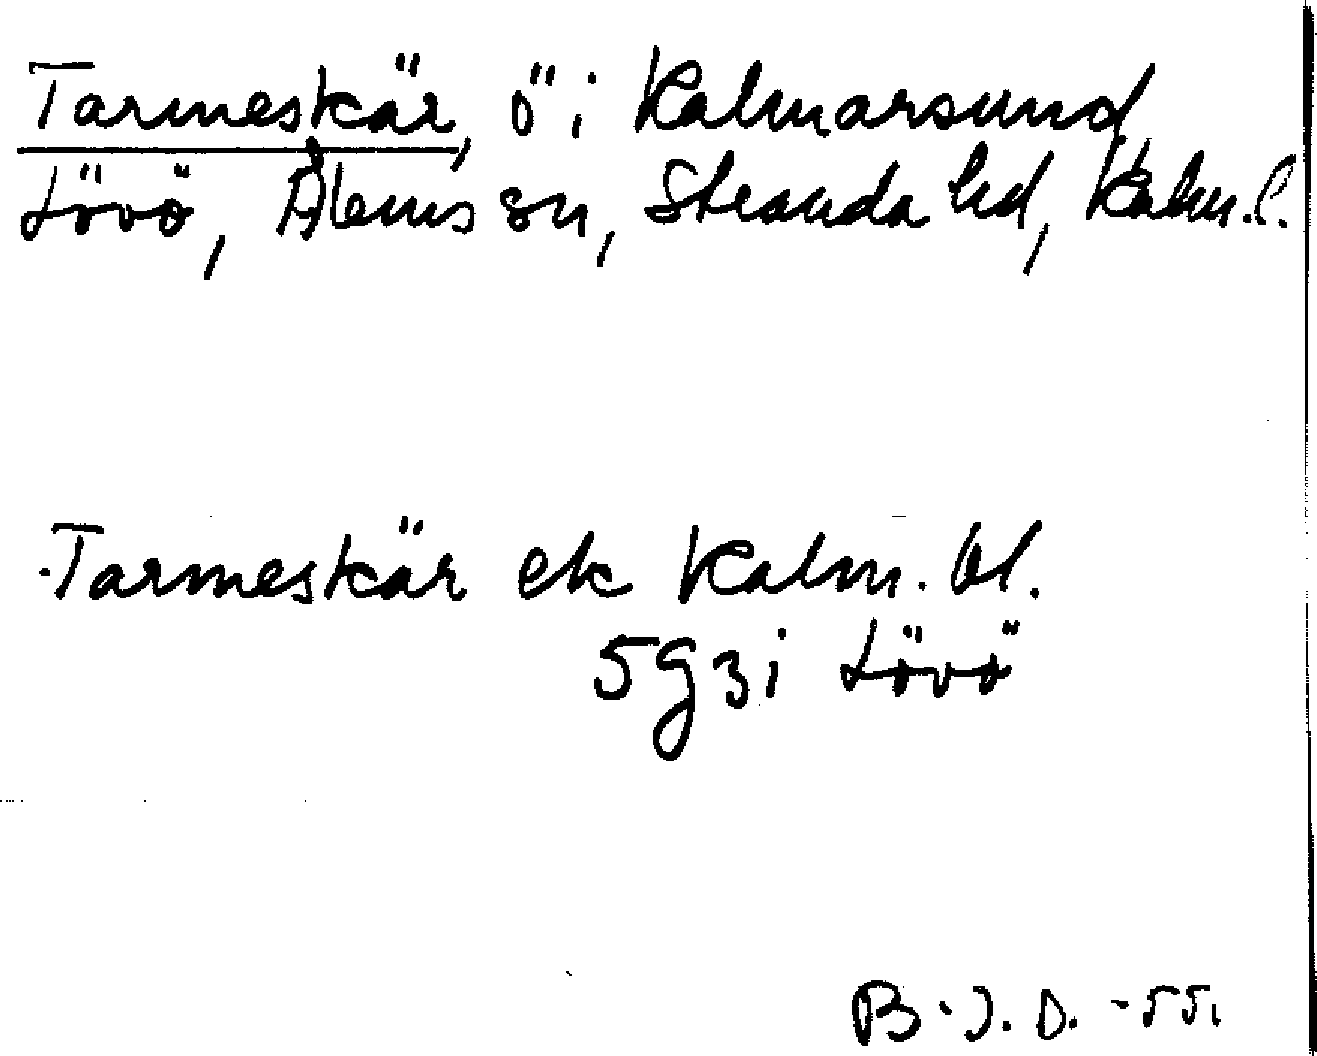 Tarmeskär, ö i Kalmarsund
Lövö, Ålems sn, Stranda hd, Kalm. l.
Tarmeskär ek Kalm. bl.
5g3i Lövö
B.J.D. -55.